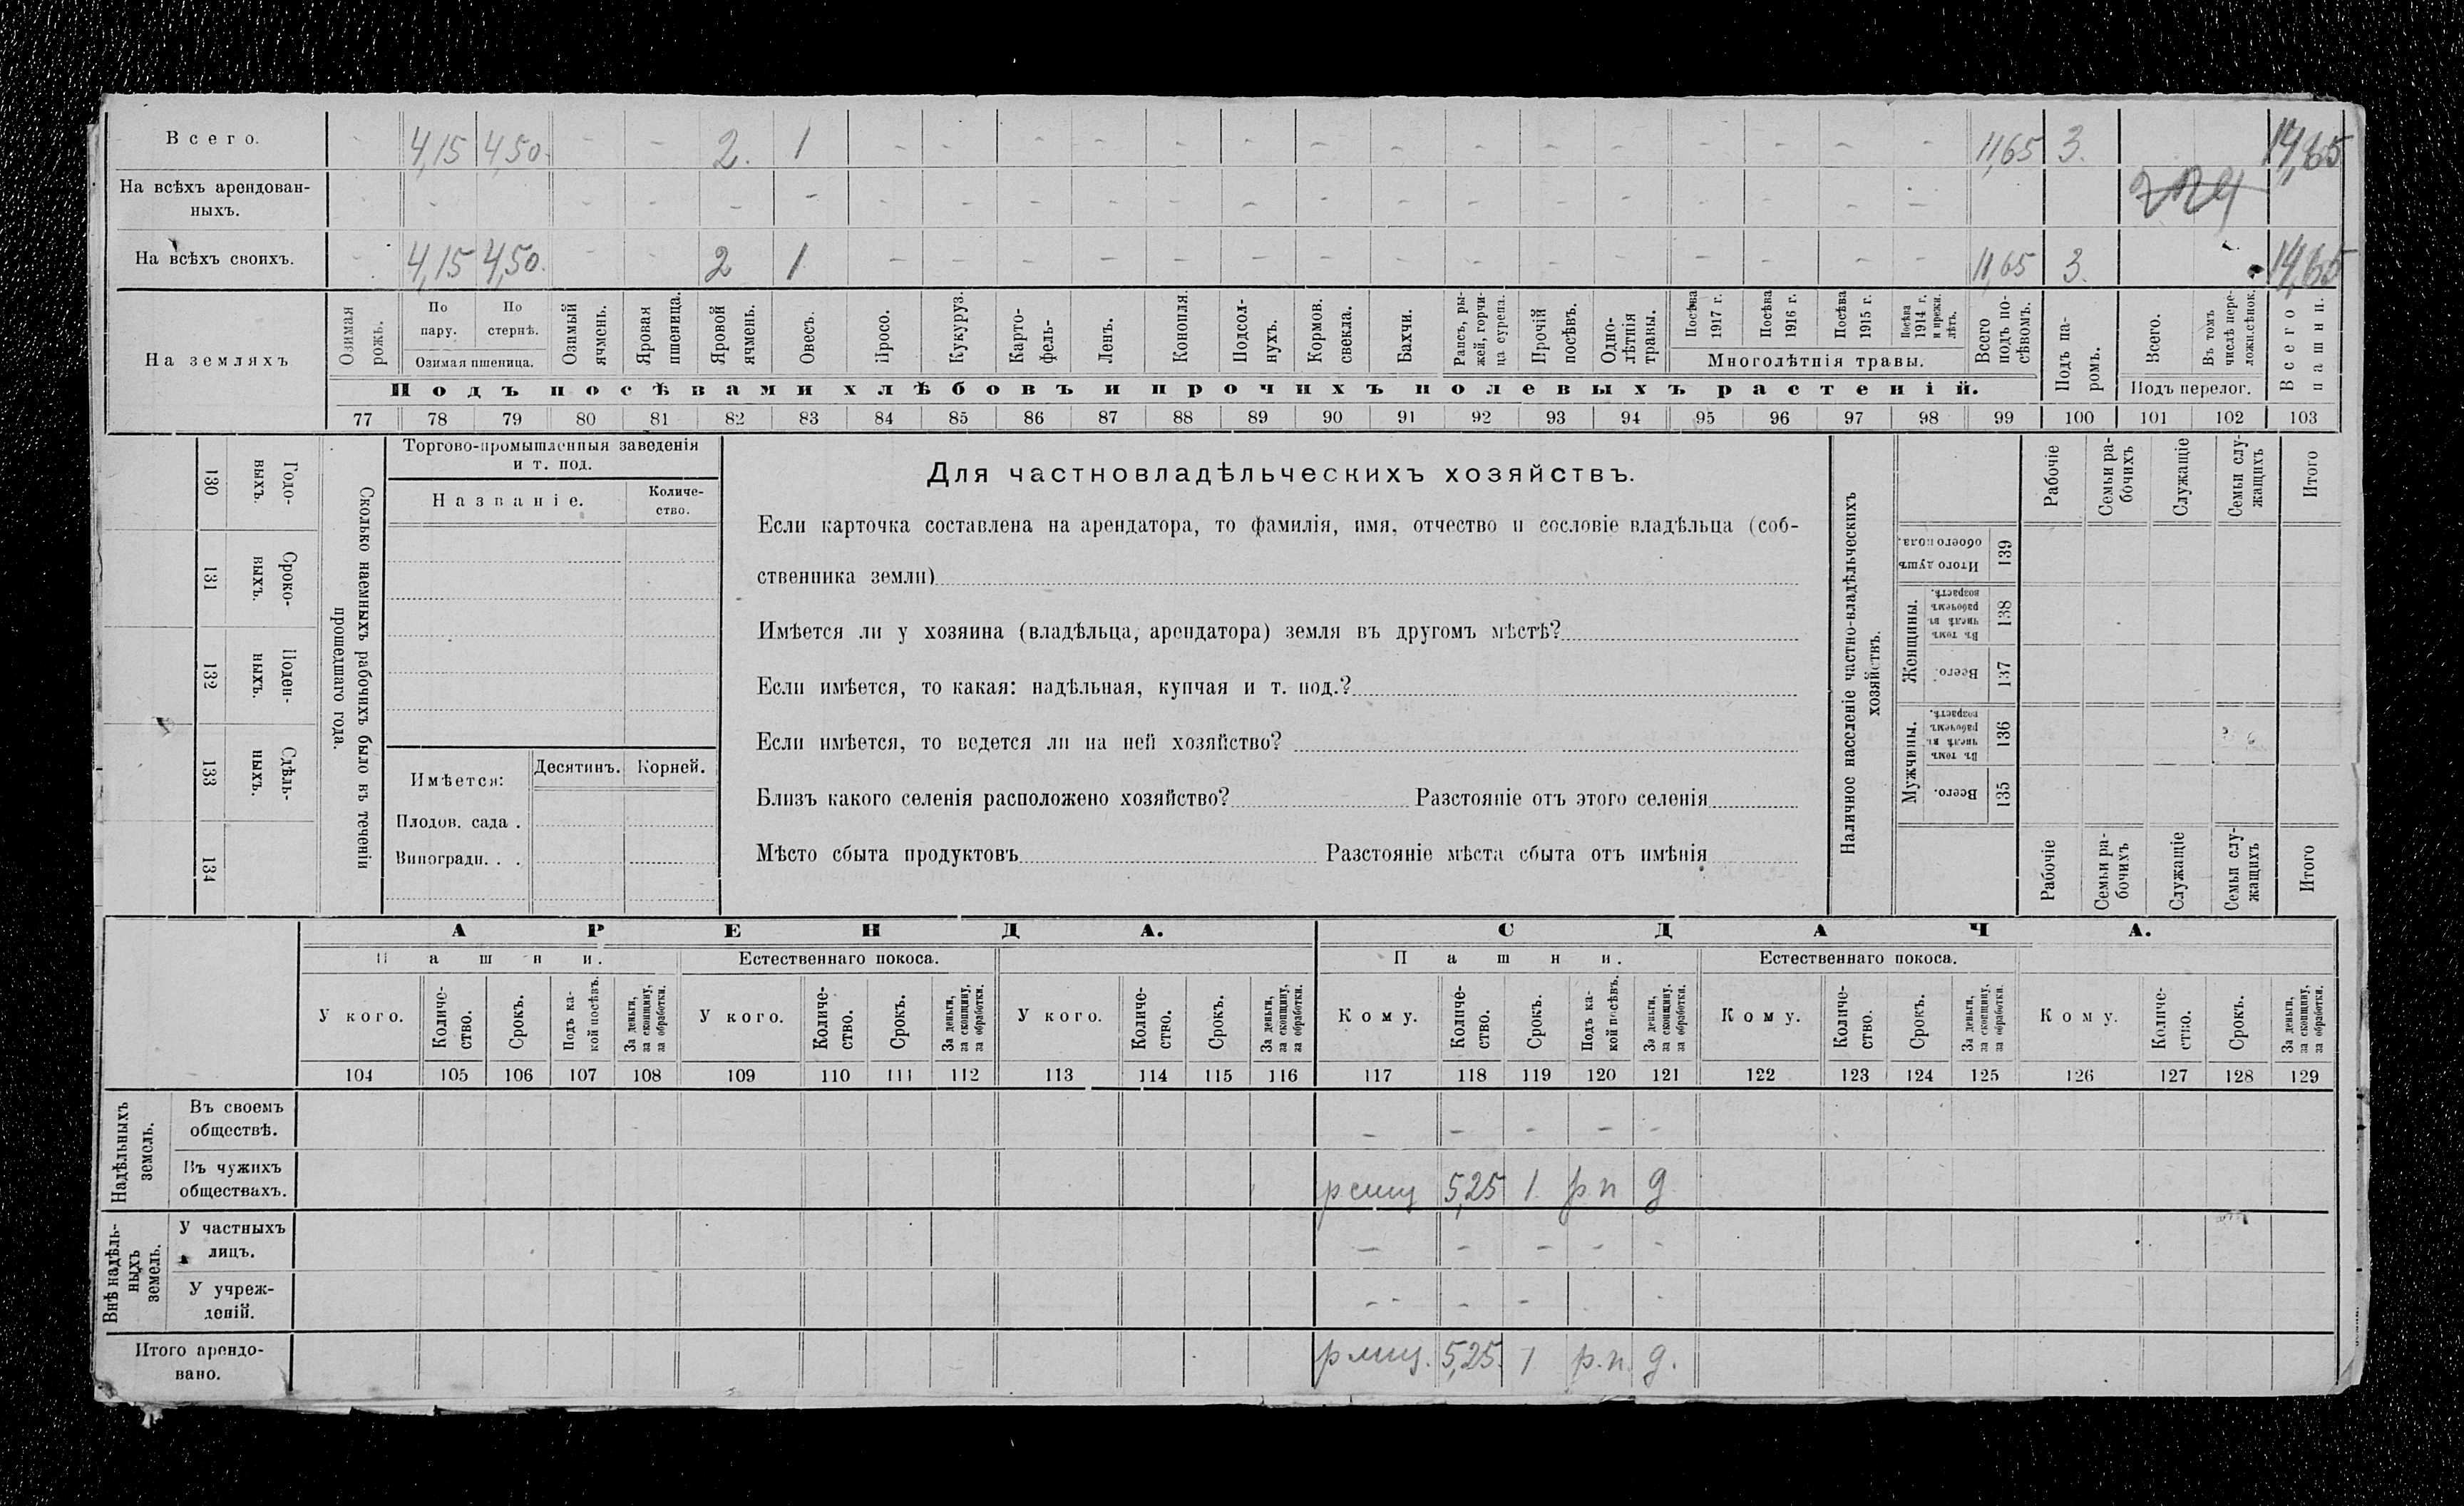 Всего. - 4,15 4,50. - - 2. 1 - - - - - - - - - - - - - - - 11,65 3. 14,65
На всѣхъ арендован-
ныхъ.
На всѣхъ своихъ. - 4,15 4,50. - - 2 1 - - - - - - - - - - - - - - - 11,65 3. 14,65
На земляхъ
Озимая рожь.
По пару.
По стернѣ.
Озимая пшеница.
Озимый ячмень.
Яровая пшеница.
Яровой ячмень.
Овесъ.
Просо.
Кукуруз.
Карто-
фель-
Ленъ.
Конопля.
Подсол-
нухъ.
Кормов. свекла.
Бахчи.
Рапсъ, ры-
жей, горчи-
ца сурепа.
Прочій посѣвъ.
Одно-
лѣтнія травы.
Посѣва 1917 г.
Посѣва 1916 г.
Посѣва 1915 г.
Посѣва 1914 г. и прежн. лѣтъ.
Многолѣтнія травы.
Всего подъ по-
сѣвомъ.
Подъ па-
ромъ.
Всего.
Въ томъ числѣ пере-
ложн.сѣнок.
Подъ перелог.
Всего пашни.
Подъ посѣвами хлѣбовъ и прочихъ полевыхъ растеній.
77 78 79 80 81 82 83 84 85 86 87 88 89 90 91 92 93 94 95 96 97 98 99 100 101 102 103
130 Годо-
выхъ.
131 Сроко-
выхъ.
132 Поден-
ныхъ.
133 Сдѣль-
ныхъ.
134
Сколько наемныхъ рабочихъ было въ теченіи
прошедшаго года.
Торгово-промышленныя заведенія
и т. под.
Названіе.
Количе-
ство.
Имѣется:
Десятинъ. Корней.
Плодов. сада .
Виноградн. . .
Для частновладѣльческихъ хозяйствъ.
Если карточка составлена на арендатора, то фамилія, имя, отчество и сословіе владѣльца (соб-
ственника земли)
Имѣется ли у хозяина (владѣльца, арендатора) земля въ другомъ мѣстѣ?
Если имѣется, то какая: надѣльная, купчая и т. под.?
Если имѣется, то ведется ли на ней хозяйство?
Близъ какого селенія расположено хозяйство? Разстояніе отъ этого селенія
Мѣсто сбыта продуктовъ Разстояніе мѣста сбыта отъ имѣнія
Наличное населеніе частно-владѣльческихъ
хозяйствъ.
Рабочіе
Семьи ра-
бочихъ
Служащіе
Семьи слу-
жащихъ
Итого
Итого душъ обоего пола. 139
Женщины.
Въ томъ числѣ въ рабочемъ возрастѣ. 138
Всего. 137
Мужчины.
Въ томъ числѣ въ рабочемъ возрастѣ. 136
Всего. 135
Рабочіе
Семьи ра-
бочихъ
Служащіе
Семьи слу-
жащихъ
Итого
АРЕНДА. СДАЧА.
Пашни. Естественнаго покоса. Пашни. Естественнаго покоса.
У кого.
Количе-
ство.
Срокъ.
Подъ ка-
кой посѣвъ.
За деньги,
за скопщину,
за обработки.
У кого.
Количе-
ство.
Срокъ.
За деньги,
за скопщину,
за обработки.
У кого.
Количе-
ство.
Срокъ.
За деньги,
за скопщину,
за обработки.
Кому.
Количе-
ство.
Срокъ.
Подъ ка-
кой посѣвъ.
За деньги,
за скопщину,
за обработки.
Кому.
Количе-
ство.
Срокъ.
За деньги,
за скопщину,
за обработки.
Кому.
Количе-
ство.
Срокъ.
За деньги,
за скопщину,
за обработки.
104 105 106 107 108 109 110 111 112 113 114 115 116 117 118 119 120 121 122 123 124 125 126 127 128 129
Надѣльныхъ
земель.
Въ своемъ
обществѣ. - - - - -
Въ чужихъ
обществахъ. 5,25 1. р п д
Внѣ надѣль-
ныхъ
земель.
У частныхъ
лицъ. - - - - -
У учреж-
деній. - - - - -
Итого арендо-
вано. 5,25. 1 р.п. д.